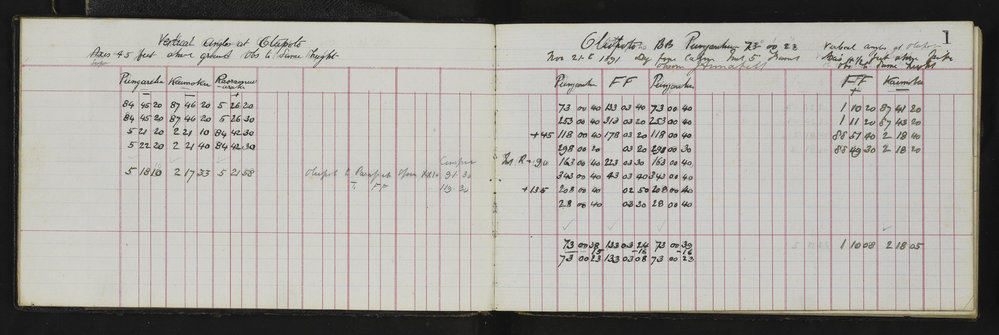 Vertical angles at Olupoto
Axis 4.5 feet above ground Obs to Same height
Pungarehu Kaimoku
84 45 20 87 46 20 5 26 20
84 45 20 87 46 20 5 26 30
5 21 20 2 21 10 84 42 30
5 22 20 2 21 40 84 42 30
5 18 10 2 17 33 5 21 58
Compass
91 30
T. FF 19 30
1
BB Pungarehu 73 00 23
Nov 21st 1891 Day fine Calm
Pungarehu FF Pungarehu
73 00 40 133 03 40 73 00 40
253 00 40 313 03 20 253 00 40
+45 118 00 40 178 03 20 118 00 40
298 00 20 03 20 298 00 30
Ins. R +90 163 00 40 223 03 30 163 00 40
343 00 40 43 03 40 343 00 40
+135 208 00 40 02 50 208 00 40
28 00 40 03 30 28 00 40
73 00 38 133 03 24 73 00 39
15 -16 -16
73 00 23 133 03 08 73 00 23
Vertical angles at
Axis feet above
Obs to same height
FF Kaimoku
1 10 20 87 41 20
1 11 20 87 43 20
88 51 40 2 18 40
88 49 30 2 18 20
1 10 08 2 18 05